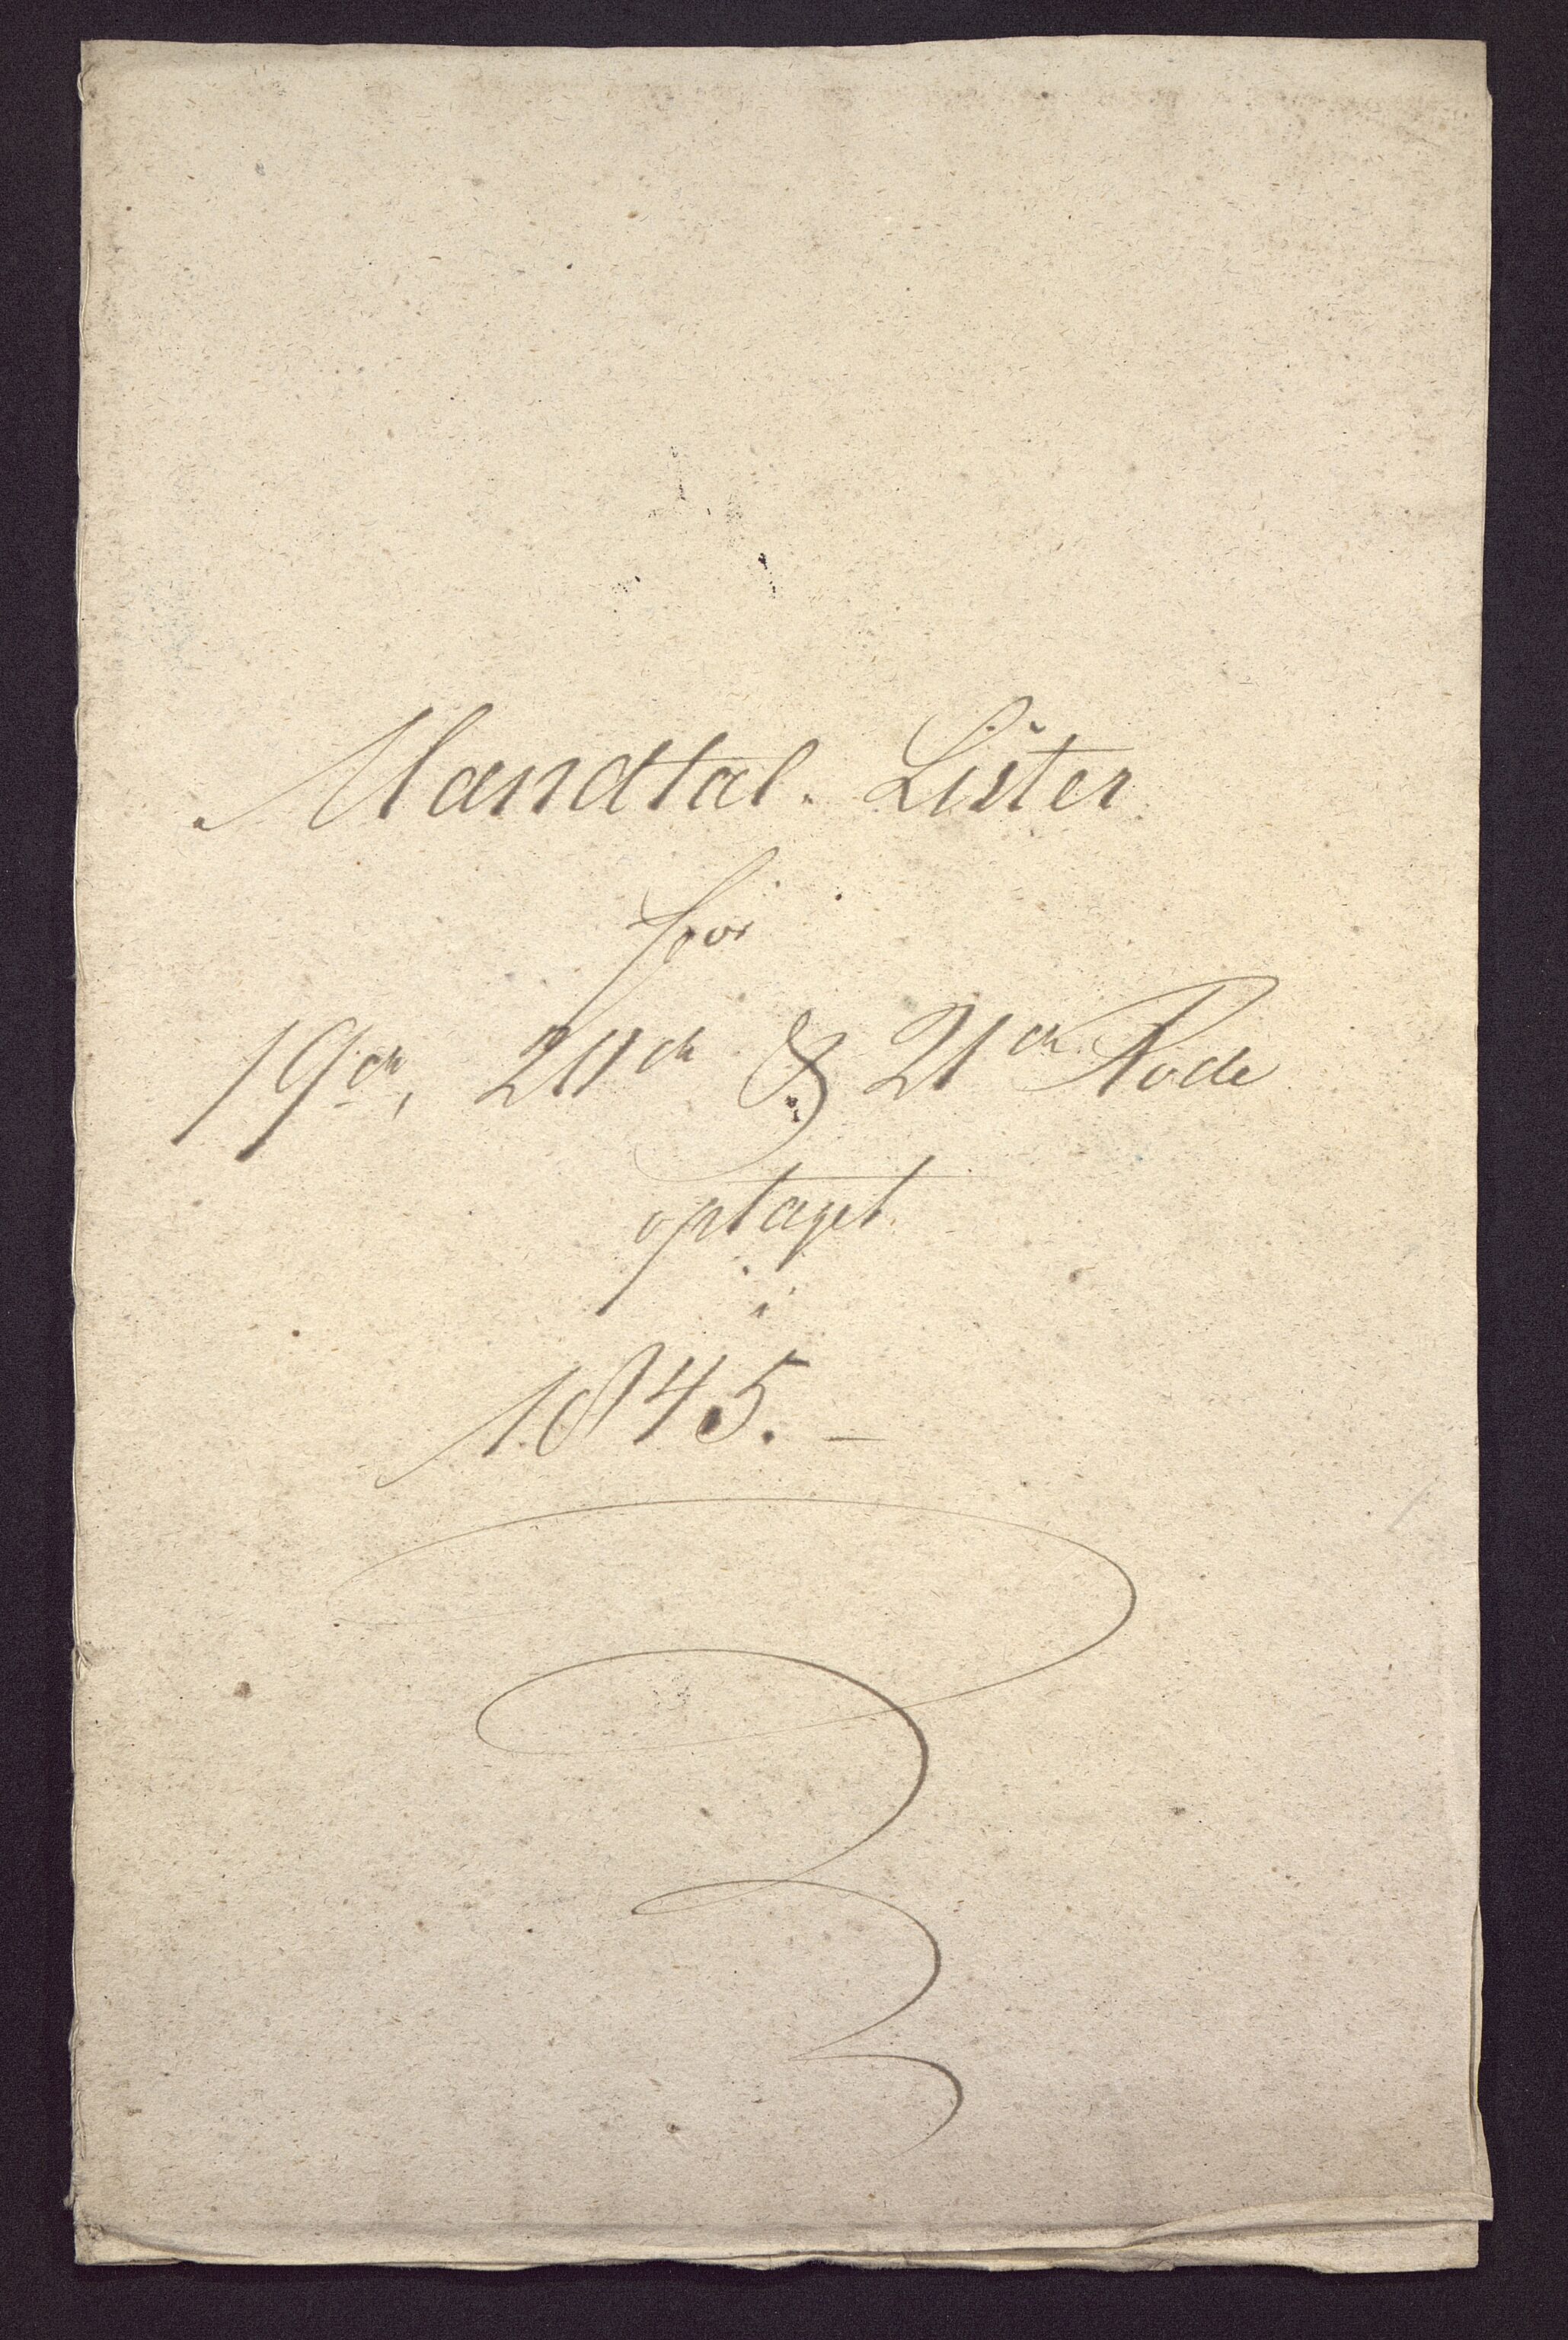 Mandtal-Lister
for
19de, 20de & 21de Rode
optaget
i
1845. –